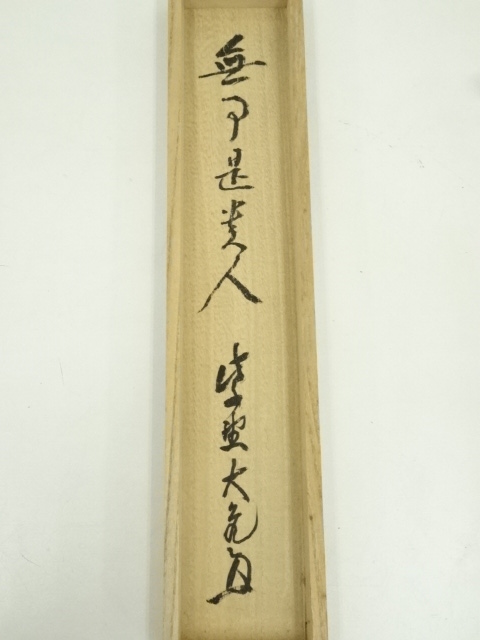 無事是貴人 紫野大亀自